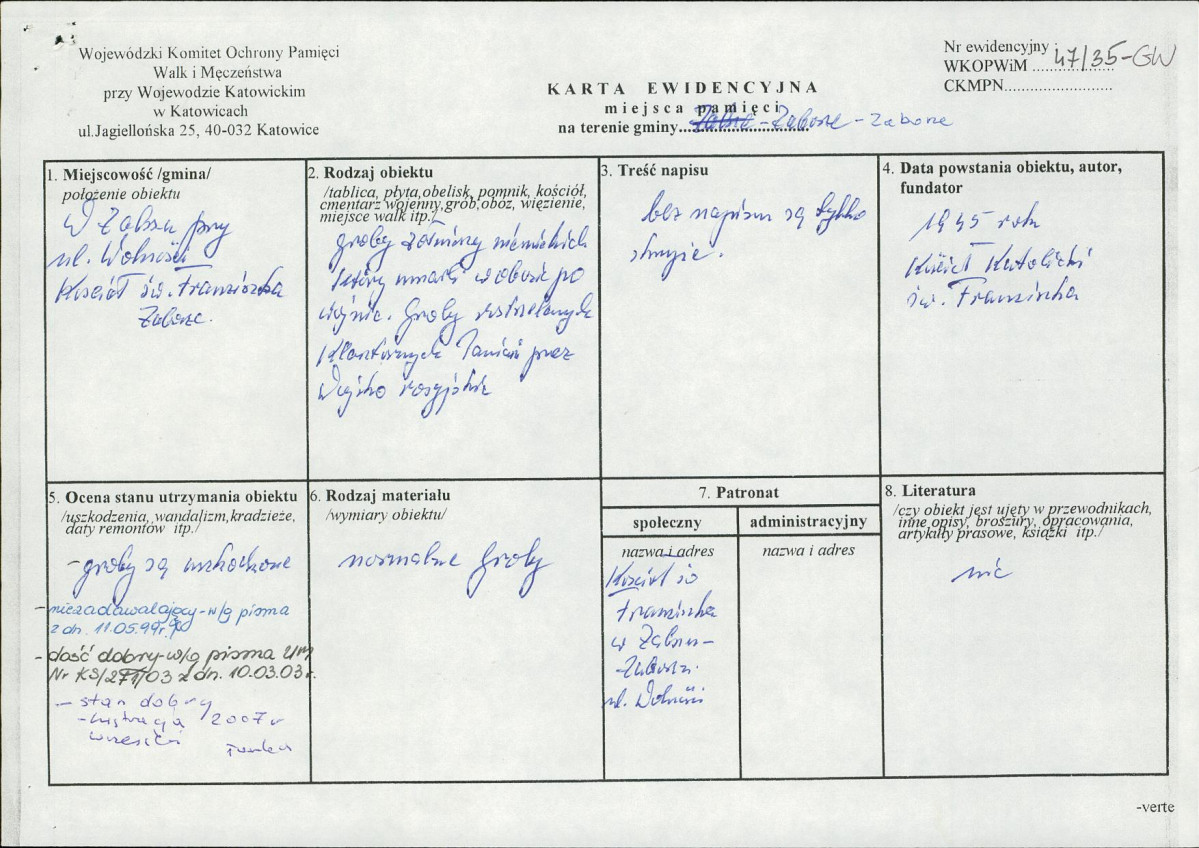 Wojewódzki Komitet Ochrony Pamięci
Walk i Męczeństwa
przy Wojewodzie Katowickim
w Katowicach
ul.Jagiellońska 25, 40-032 Katowice
KARTA EWIDENCYJNA
miejsca pamięci
na terenie gminy.............................. Zabrze - Zaborze
Nr ewidencyjny
WKOPWiM ................ 47/35-GW
CKMPN..........................
1. Miejscowość /gmina/
położenie obiektu
W Zabrzu przy
ul. Wolności
Kościół św. Franciszka
Zaborze.
2. Rodzaj obiektu
/tablica, płyta,obelisk, pomnik, kościół,
cmentarz wojenny,grób,obóz, więzienie,
miejsce walk itp./
groby żołnierzy niemieckich
którzy umarli w obozie po
wojnie. Groby rozstrzelanych
przez
Wojsko rosyjskie
3. Treść napisu
bez napisu są tylko
krzyże.
4. Data powstania obiektu, autor,
fundator
1945 roku
Kościół Katolicki
św. Franciszka
5. Ocena stanu utrzymania obiektu
/uszkodzenia, wandalizm,kradzieże,
daty remontów itp./
- groby są uszkodzone
- niezadawalający - w/g pisma
z dn. 11.05.99r.
- dość dobry - w/g pisma UM
Nr KS/271/03 z dn. 10.03.03r.
- stan dobry
- lustracja 2007 r
wrzesień
6. Rodzaj materiału
/wymiary obiektu/
normalne groby
7. Patronat
społeczny
nazwa i adres
Kościół św
Franciszka
w Zabrzu-
Zaborzu
ul. Wolności
administracyjny
nazwa i adres
8. Literatura
/czy obiekt jest ujęty w przewodnikach,
inne opisy, broszury, opracowania,
artykuły prasowe, książki itp./
nic
-verte